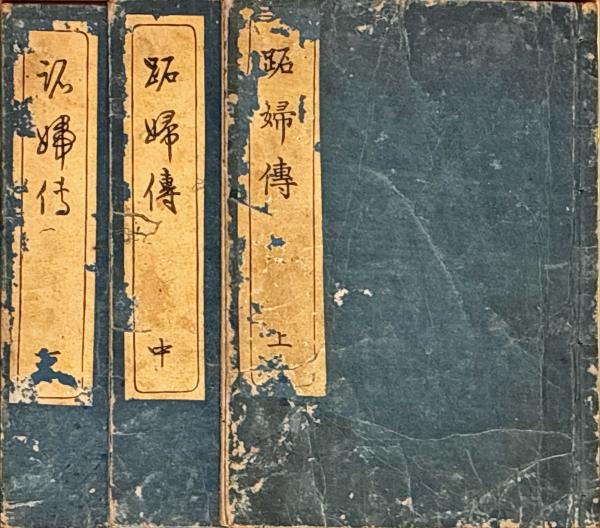 跖婦傳 上
跖婦傳 中
跖婦傳